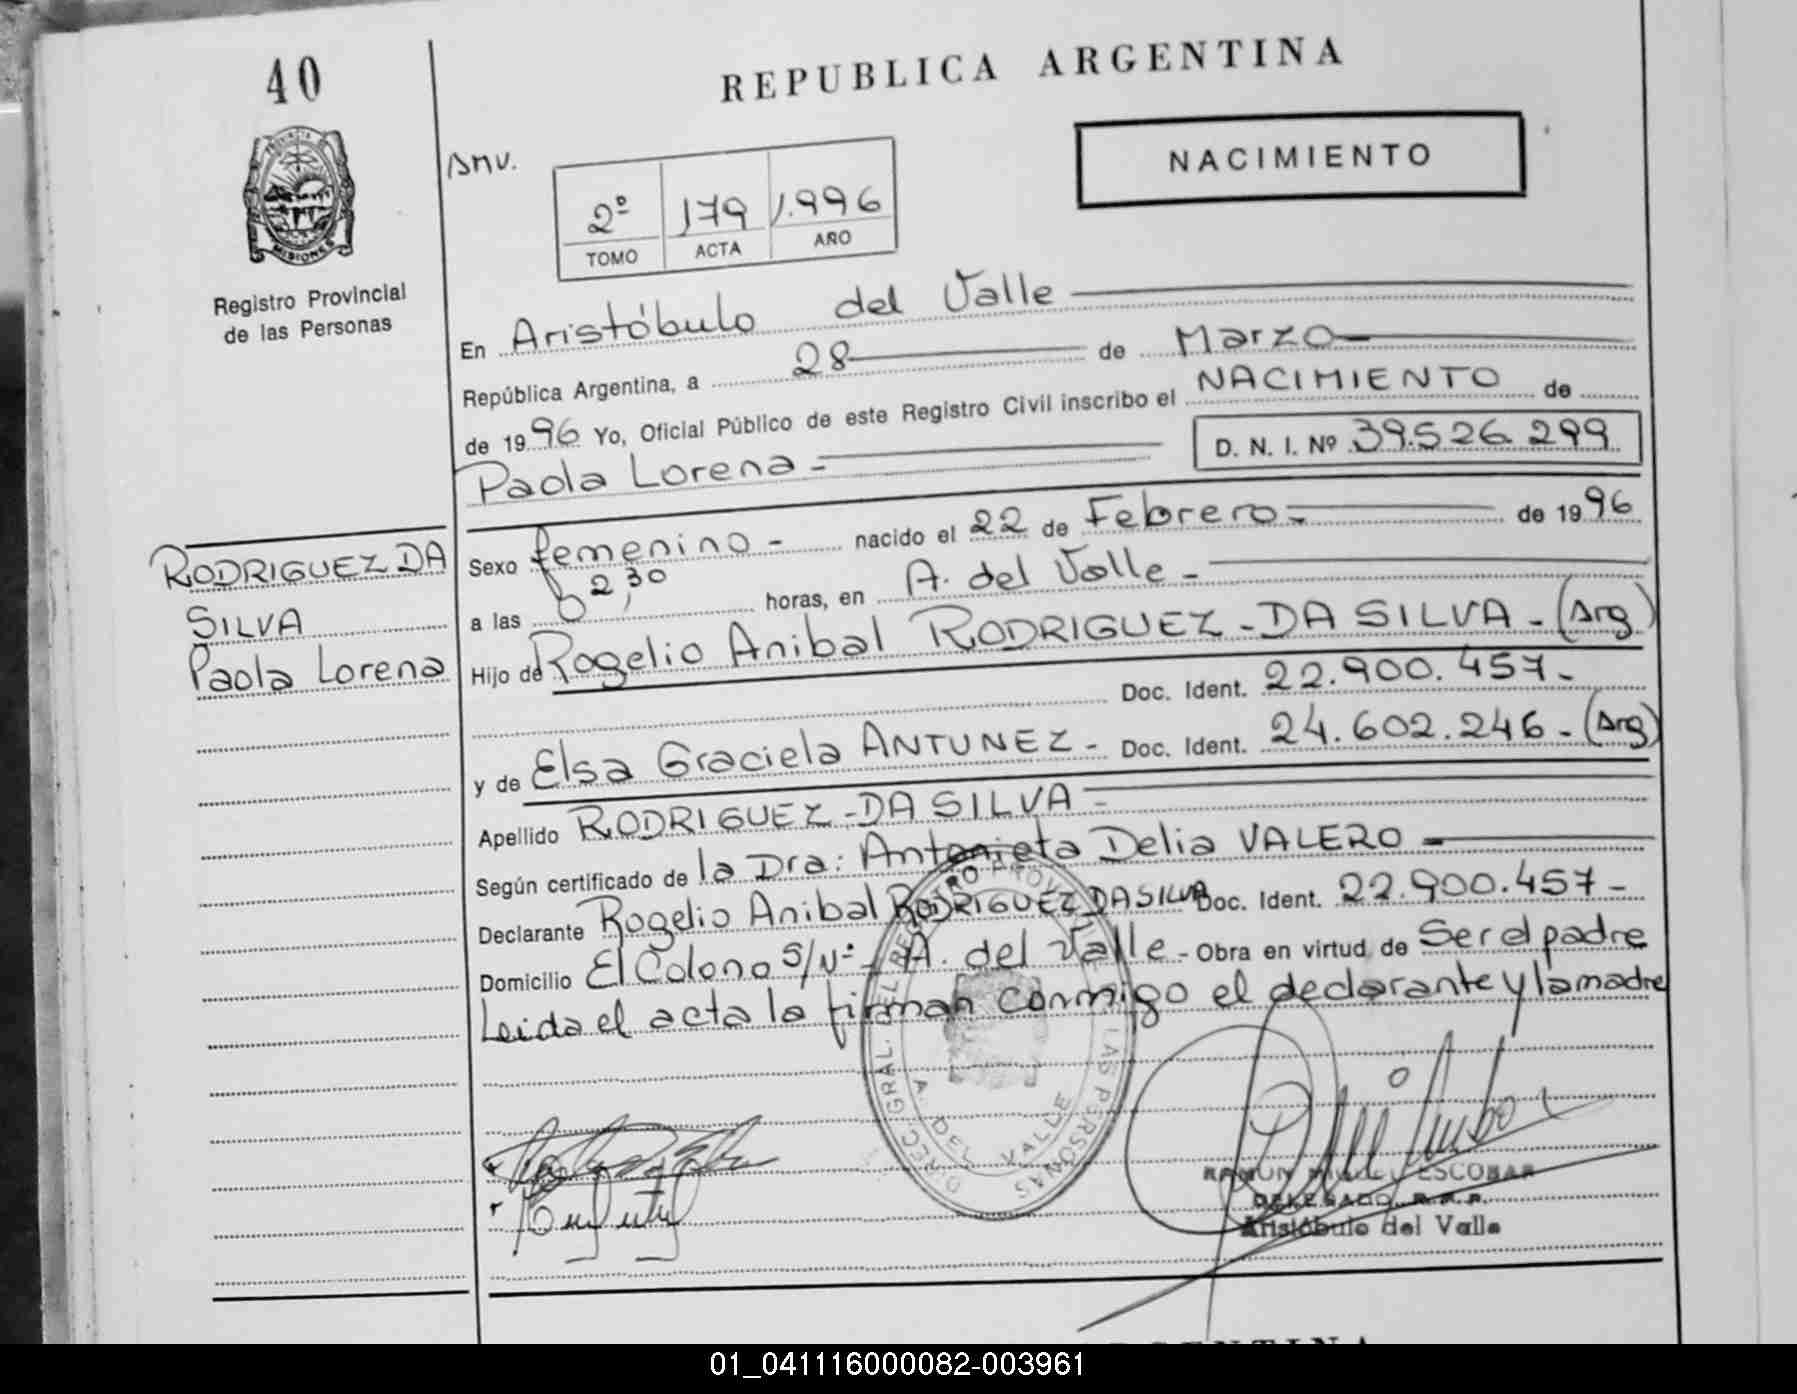 40
REPUBLICA ARGENTINA
PROVINCIA
MISIONES
Registro Provincial
de las Personas
NACIMIENTO
2º 179 1.996
TOMO ACTA AÑO
En Aristóbulo del Valle
República Argentina, a 28 de Marzo
de 1996 Yo, Oficial Público de este Registro Civil inscribo el NACIMIENTO de
Paola Lorena - D. N. I. Nº 39.526.299
RODRIGUEZ DA
SILVA
Paola Lorena
Sexo femenino - nacido el 22 de Febrero - de 1996
a las 2,30 horas, en A. del Valle -
Hijo de Rogelio Anibal RODRIGUEZ - DA SILVA - (Arg)
Doc. Ident. 22.900.457 -
y de Elsa Graciela ANTUNEZ - Doc. Ident. 24.602.246 - (Arg)
Apellido RODRIGUEZ - DA SILVA -
Según certificado de la Dra: Antonieta Delia VALERO -
Declarante Rogelio Anibal RODRIGUEZ DA SILVA Doc. Ident. 22.900.457 -
Domicilio El Colono S/Nº - A. del Valle - Obra en virtud de Ser el padre
Leida el acta la firman conmigo el declarante y la madre
DIREC. GRAL. DEL REGISTRO PROVINCIAL DE LAS PERSONAS
A. DEL VALLE
RAMON MIGUEL ESCOBAR
DELEGADO R.P.P.
Aristóbulo del Valle
ARGENTINA
01_041116000082-003961